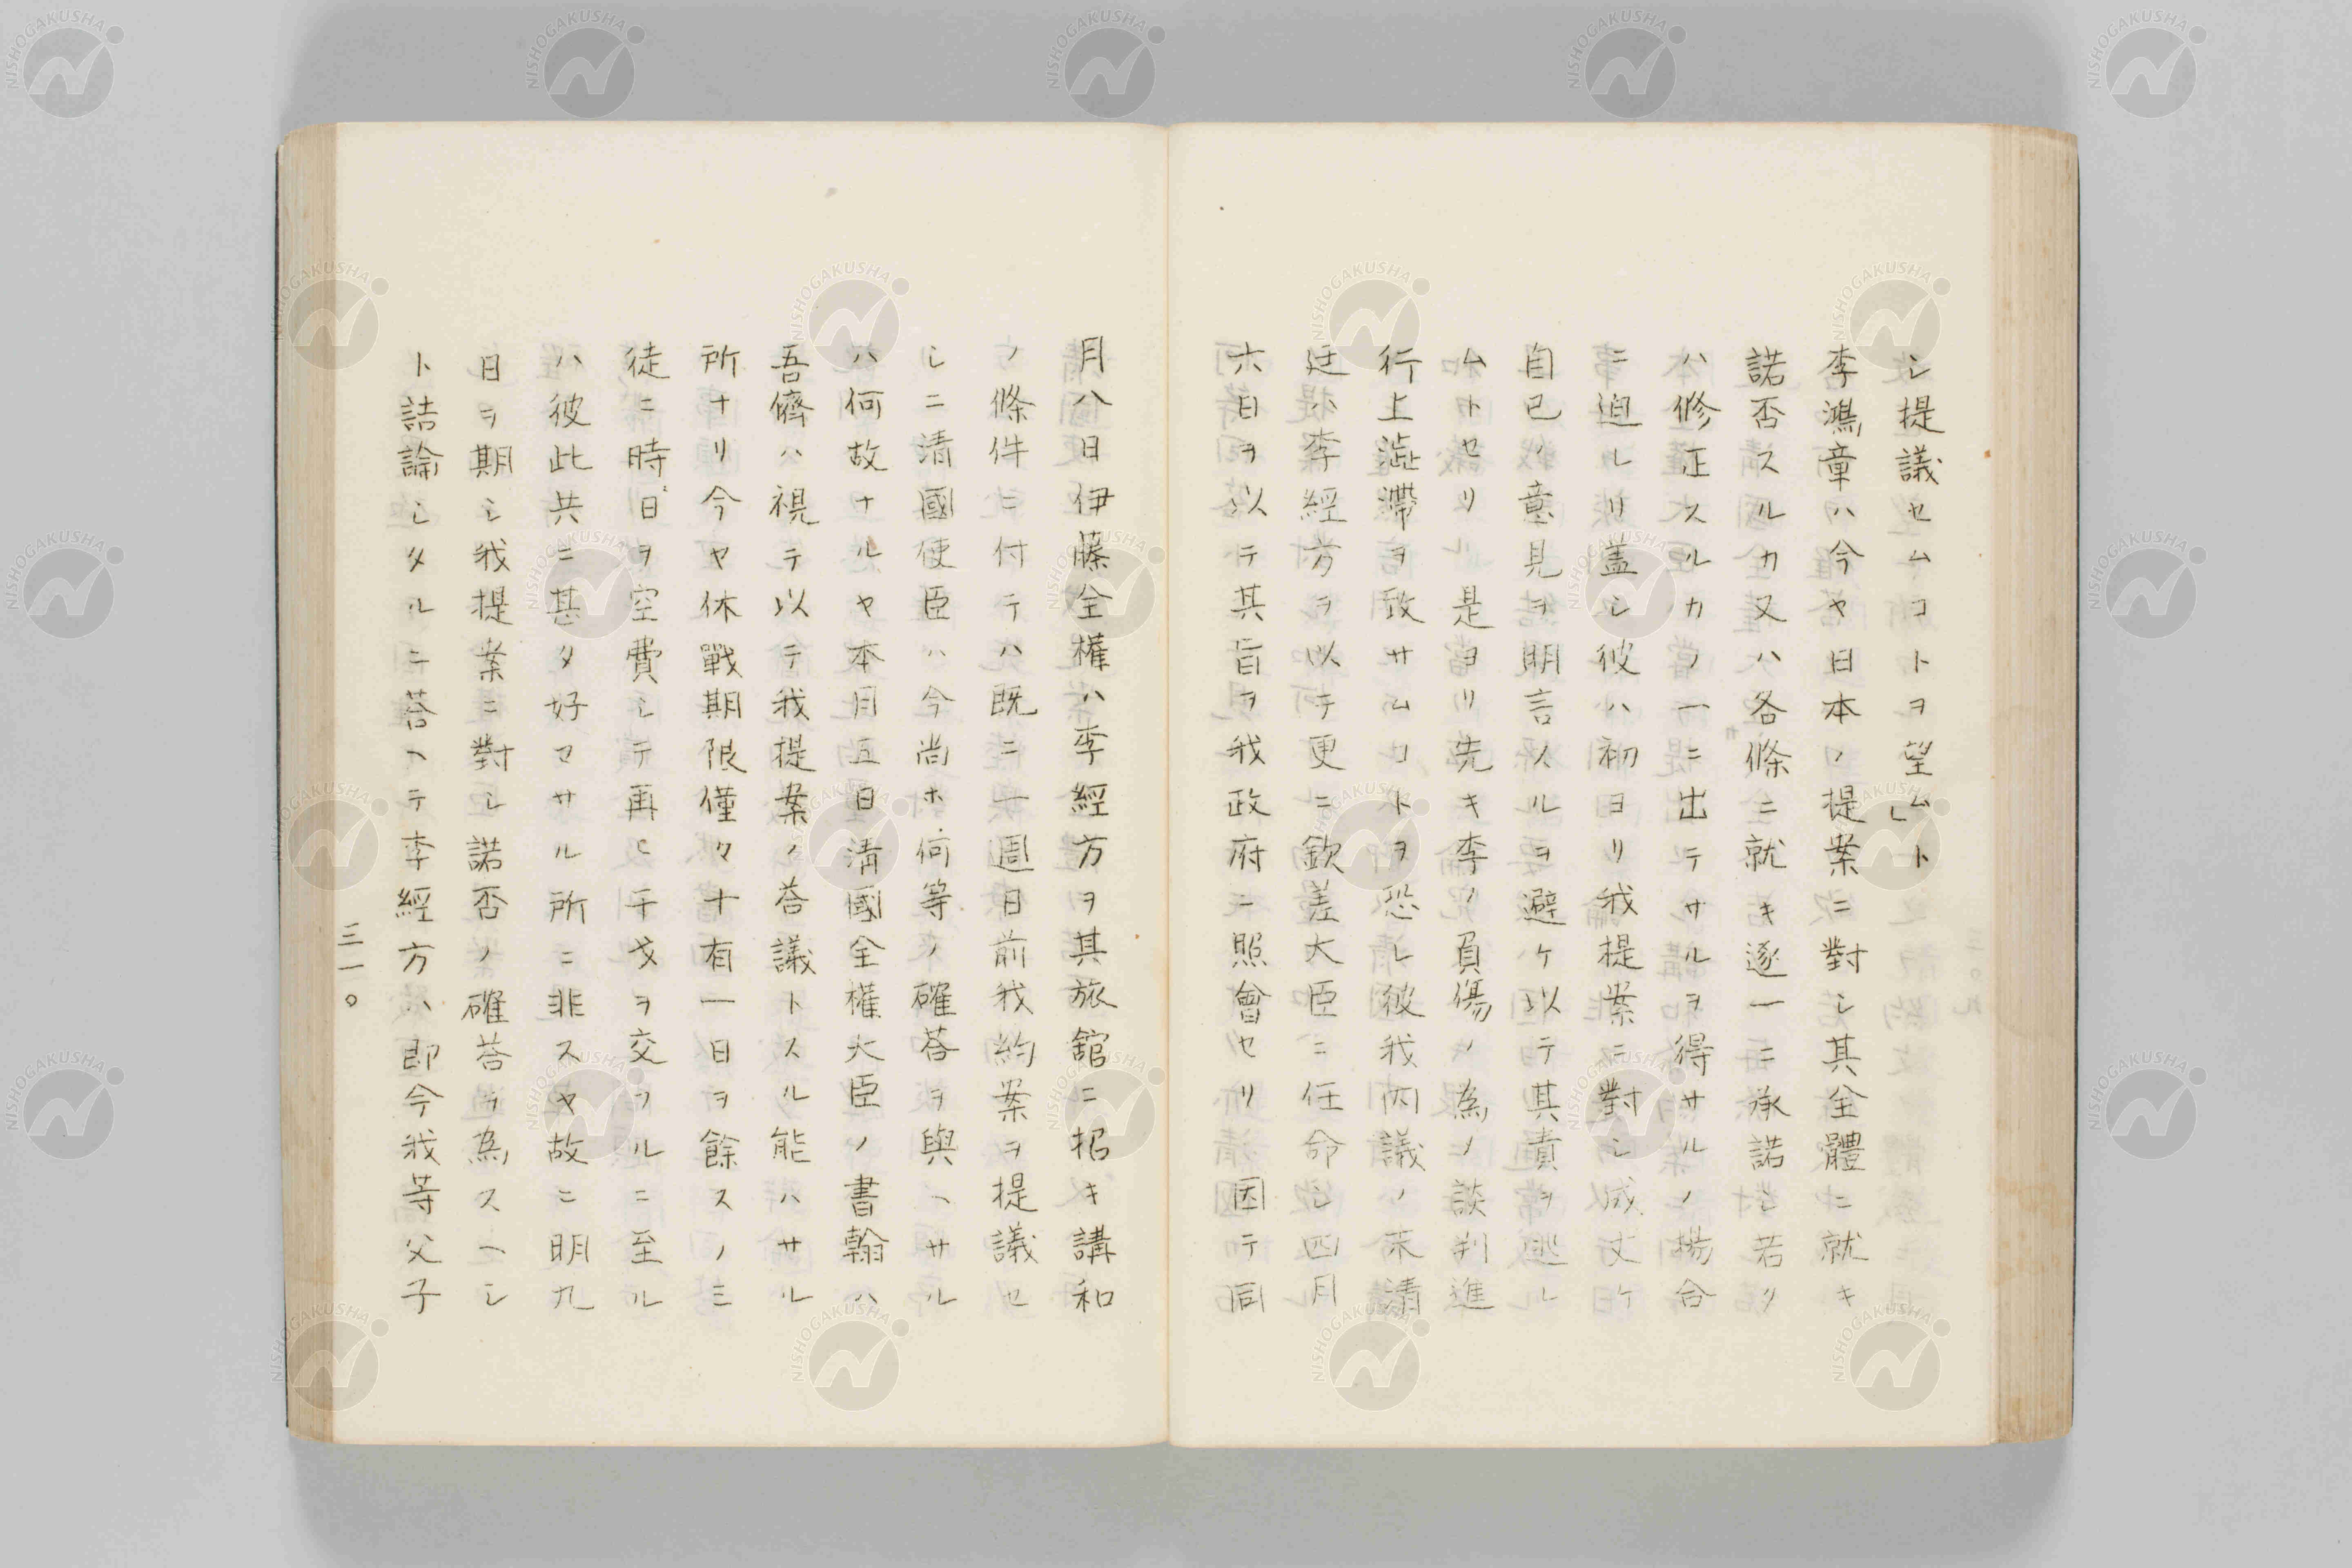 シ提議セムコトヲ望ムト」
李鴻章ハ今ヤ日本ノ提案ニ對シ其全體ニ就キ
諾否スルカ又ハ各條ニ就キ逐一ニ承諾シ若ク
ハ修正スルカノ一ニ出テサルヲ得サルノ塲合
ニ迫レリ盖シ彼ハ初ヨリ我提案ニ對シ成丈ケ
自己ノ意見ヲ明言スルヲ避ケ以テ其責ヲ逃レ
ムトセリ 是ヨリ先キ李ノ負傷ノ為ノ談判進
行上澁滯ヲ致サムコトヲ恐レ彼我内議ノ末清
廷ハ李經方ヲ以テ更ニ欽差大臣ニ任命シ四月
六日ヲ以テ其旨ヲ我政府ニ照會セリ因テ同
月八日伊藤全權ハ李經方ヲ其旅舘ニ招キ講和
ノ條件ニ付テハ既ニ一週日前我約案ヲ提議セ
シニ清國使臣ハ今尚ホ何等ノ確荅ヲ與ヘサル
ハ何故ナルヤ本月五日清國全權大臣ノ書翰ハ
吾儕ハ視テ以テ我提案ノ荅議トスル能ハサル
所ナリ今ヤ休戰期限僅々十有一日ヲ餘スノミ
徒ニ時日ヲ空費シテ再ヒ干戈ヲ交フルニ至ル
ハ彼此共ニ甚タ好マサル所ニ非スヤ故ニ明九
日ヲ期シ我提案ニ對シ諾否ノ確荅ヲ為スヘシ
ト詰論シタルニ荅ヘテ李經方ハ即今我等父子
三一〇
NISHOGAKUSHA